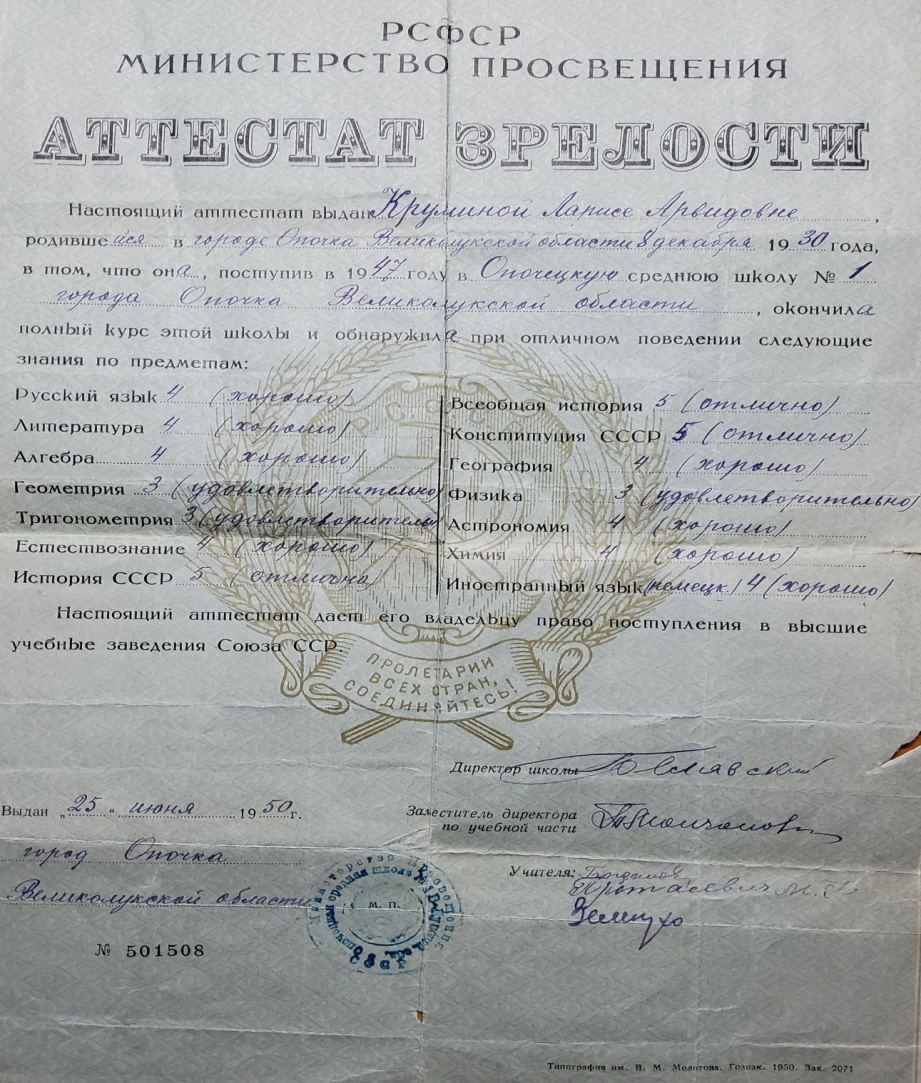 РСФСР
МИНИСТЕРСТВО ПРОСВЕЩЕНИЯ
АТТЕСТАТ ЗРЕЛОСТИ
Настоящий аттестат выдан Круминой Ларисе Арвидовне,
родившейся в городе Опочка Великолукской области 8 декабря 1930 года,
в том, что она, поступив в 1947 году в Опочецкую среднюю школу № 1
города Опочка Великолукской области, окончила
полный курс этой школы и обнаружила при отличном поведении следующие
знания по предметам:
Русский язык 4 (хорошо)
Литература 4 (хорошо)
Алгебра 4 (хорошо)
Геометрия 3 (удовлетворительно)
Тригонометрия 3 (удовлетворительно)
Естествознание 4 (хорошо)
История СССР 5 (отлично)
Всеобщая история 5 (отлично)
Конституция СССР 5 (отлично)
География 4 (хорошо)
Физика 3 (удовлетворительно)
Астрономия 4 (хорошо)
Химия 4 (хорошо)
Иностранный язык (немецк.) 4 (хорошо)
Настоящий аттестат дает его владельцу право поступления в высшие
учебные заведения Союза ССР.
РСФСР
ПРОЛЕТАРИИ
ВСЕХ СТРАН,
СОЕДИНЯЙТЕСЬ!
Директор школы
Заместитель директора
по учебной части
Учителя: Богданов
Протасевич М.
Выдан „25“ июня 1950 г.
город Опочка
Великолукской области
М. П.
Министерство Просвещения
№ 501508
Типография им. В. М. Молотова. Гознак. 1950. Зак. 2071